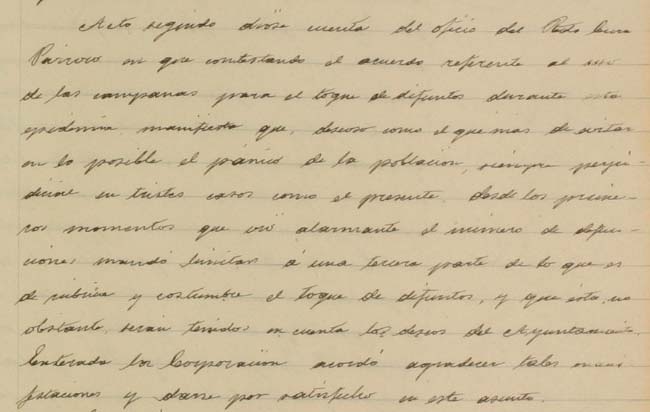 Acto seguido dióse cuenta del oficio del Rvdo Cura
Párroco en que contestando el acuerdo referente al uso
de las campanas para el toque de difuntos durante esta
epidemia, manifiesta que, deseoso como el que mas de evitar
en lo posible el pánico de la poblacion, siempre perju-
dicial en tristes casos como el presente, desde los prime-
ros momentos que vió alarmante el número de defun-
ciones mandó limitar á una tercera parte de lo que es
de rúbrica y costumbre el toque de difuntos, y que esto, no
obstante, serán tenidos en cuenta los deseos del Ayuntamiento.
Enterada la Corporación acordó agradecer tales mani-
festaciones y darse por satisfecho en este asunto.